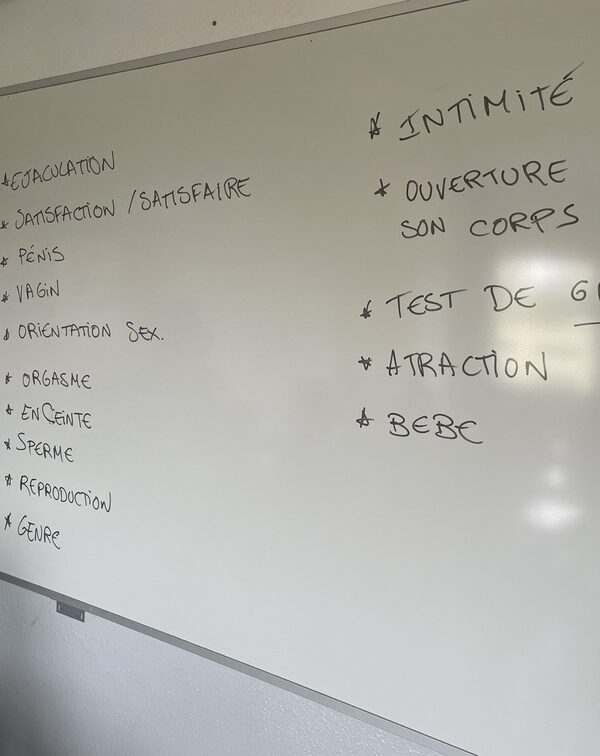 * EJACULATION
* SATISFACTION / SATISFAIRE
* PÉNIS
* VAGIN
* ORIENTATION SEX.
* ORGASME
* ENCEINTE
* SPERME
* REPRODUCTION
* GENRE
* INTIMITÉ
* OUVERTURE
SON CORPS
* TEST DE
* ATRACTION
* BEBE